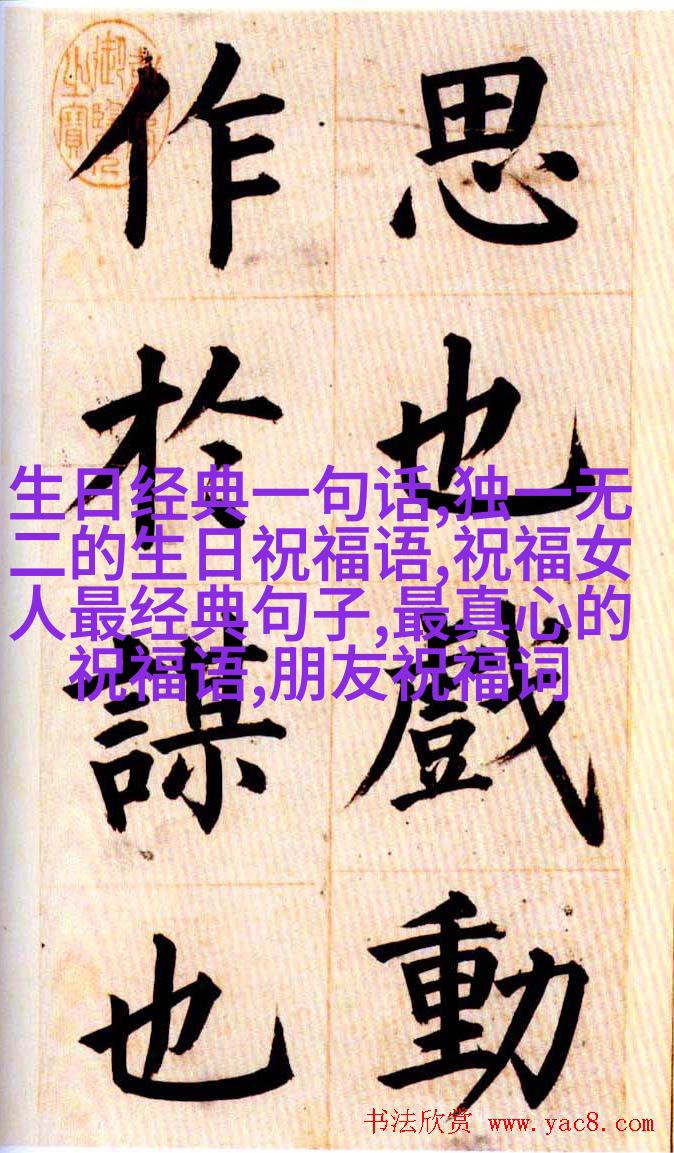 思也戲動
作於謀也
御覽
之寶
生日经典一句话,独一无
二的生日祝福语,祝福女
人最经典句子,最真心的
祝福语,朋友祝福词
书法欣赏 www.yac8.com